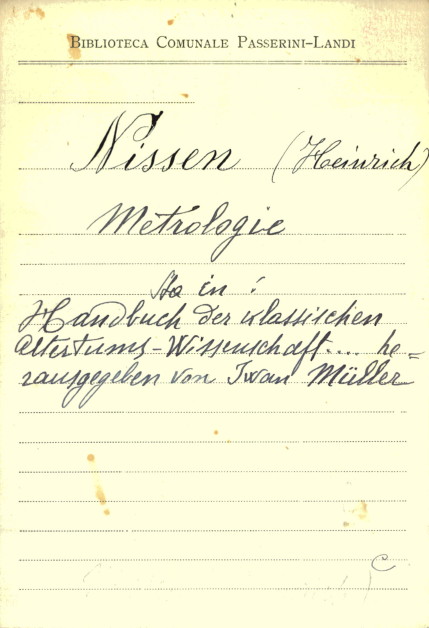 BIBLIOTECA COMUNALE PASSERINI-LANDI
Nissen (Heinrich)
Metrologie
Sta in :
Handbuch der klassischen
Altertums-Wissenschaft.... he=
rausgegeben von Iwan Müller
C